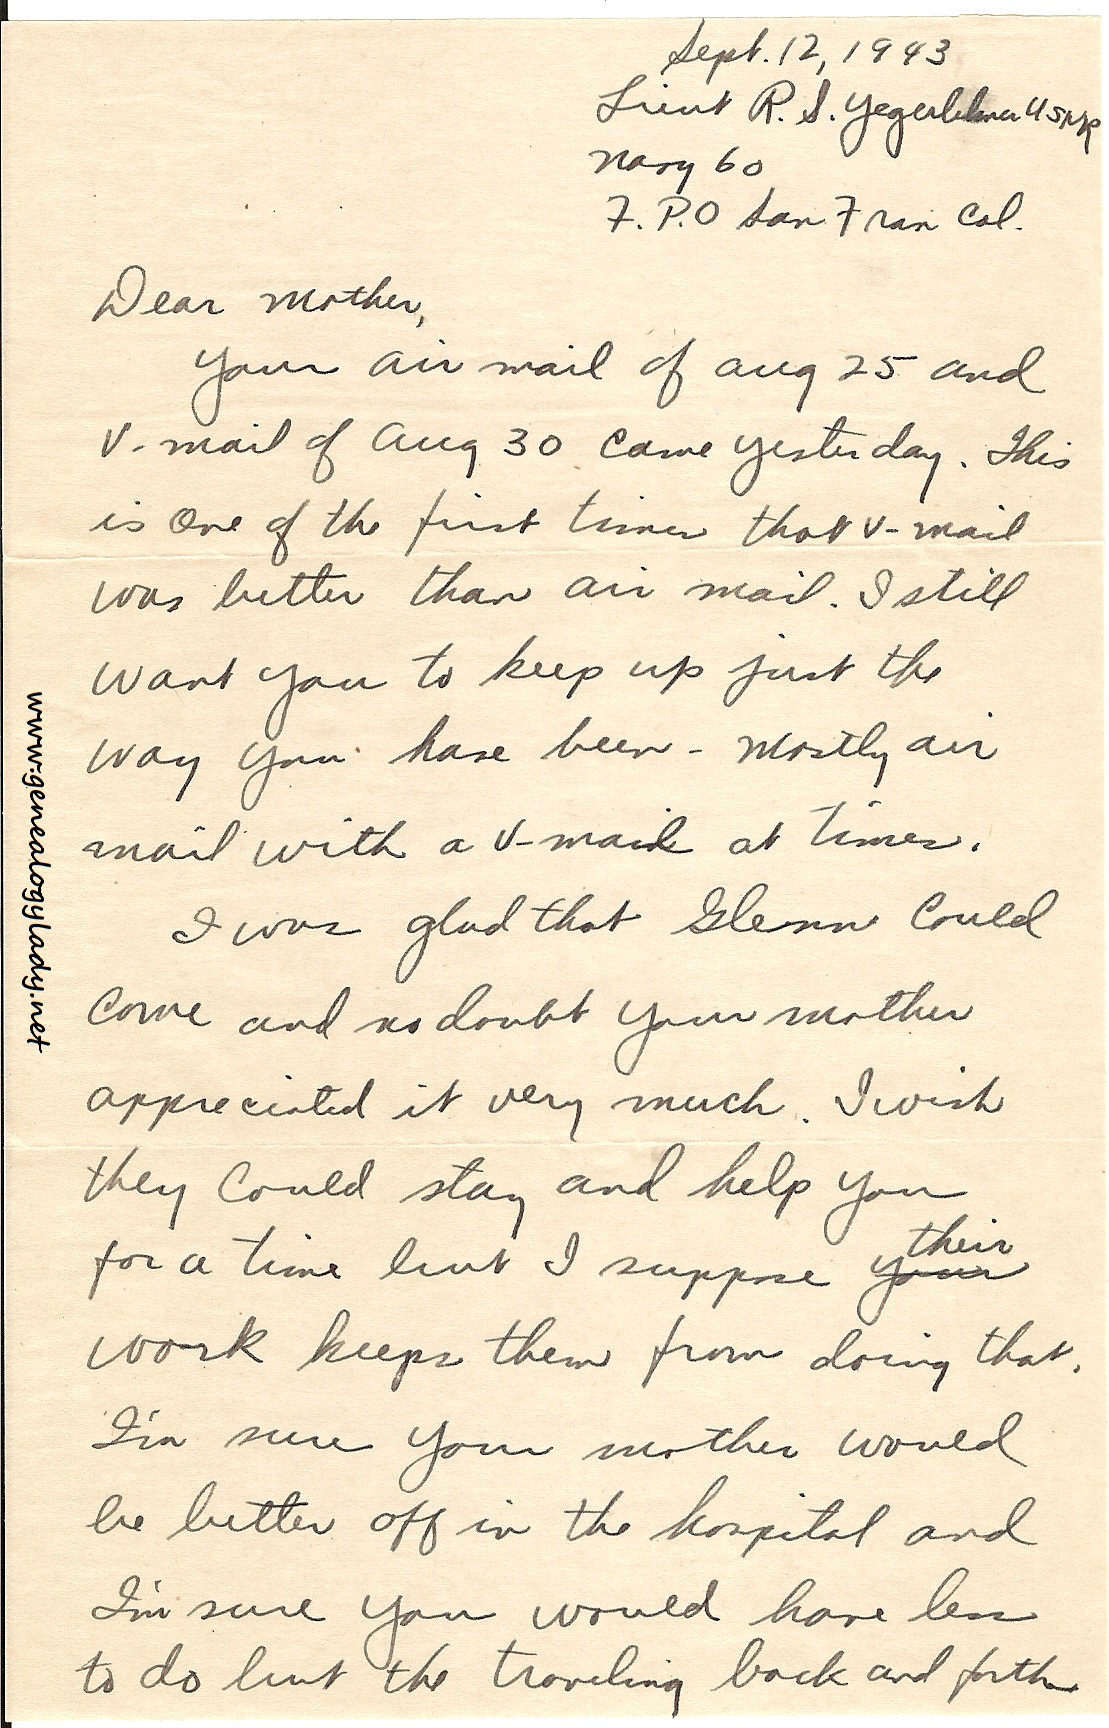 Sept. 12, 1943
Lieut R. S. Yegerlehner USNR
Navy 60
F. P.O San Fran Cal.
Dear Mother,
Your air mail of Aug 25 and
V-mail of Aug 30 came yesterday. This
is one of the first times that V-mail
was better than air mail. I still
want you to keep up just the
way you have been - mostly air
mail with a V-mail at times.
I was glad that Glenn could
come and no doubt your mother
appreciated it very much. I wish
they could stay and help you
for a time but I suppose your their
work keeps them from doing that.
I'm sure your mother would
be better off in the hospital and
I'm sure you would have less
to do but the traveling back and forth
www.genealogylady.net